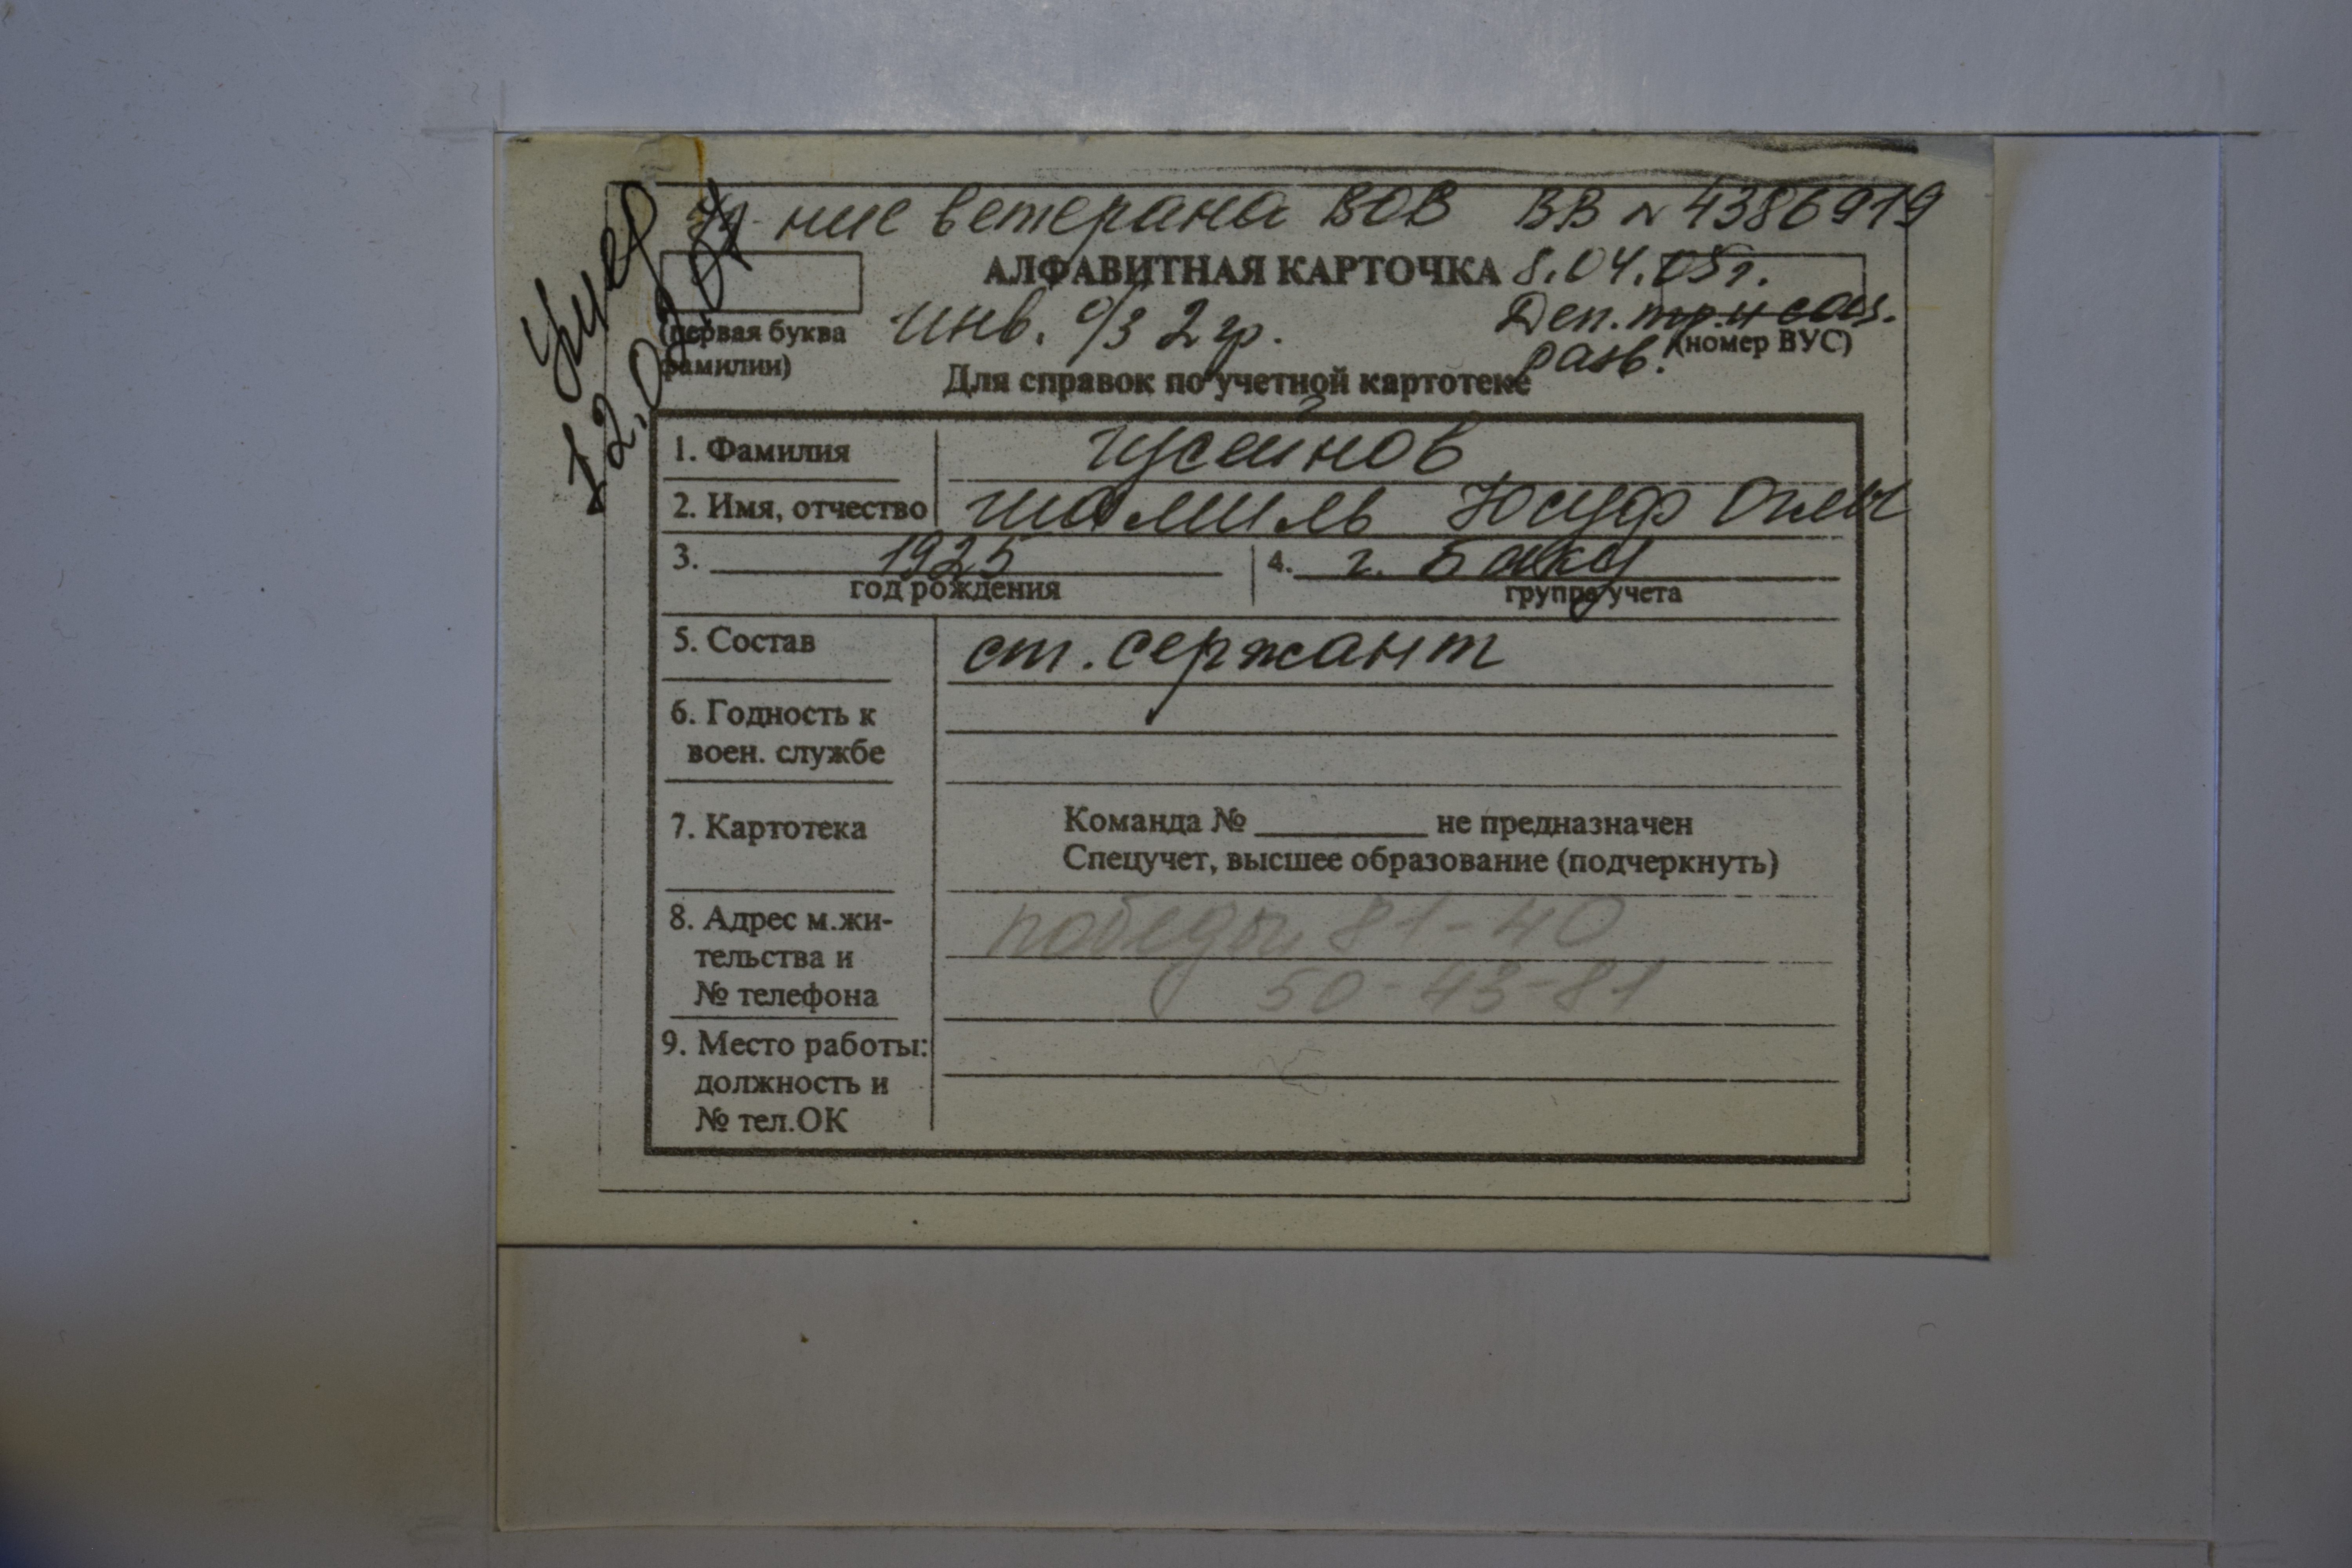 Уд-ние ветерана ВОВ ВВ N 4386919
АЛФАВИТНАЯ КАРТОЧКА 8.04.05г.
умер
12.03.07
инв. о/з 2 гр.
Деп. тр. и соц.
разв.
(первая буква
фамилии)
(номер ВУС)
Для справок по учетной картотеке
1. Фамилия Гусейнов
2. Имя, отчество Шамиль Юсуф Оглы
3. 1925 4. г. Баку
год рождения группа учета
5. Состав ст. сержант
6. Годность к
воен. службе
7. Картотека Команда № ________ не предназначен
Спецучет, высшее образование (подчеркнуть)
8. Адрес м.жи-
тельства и
№ телефона
Победы, 81-40
50-43-81
9. Место работы:
должность и
№ тел.ОК